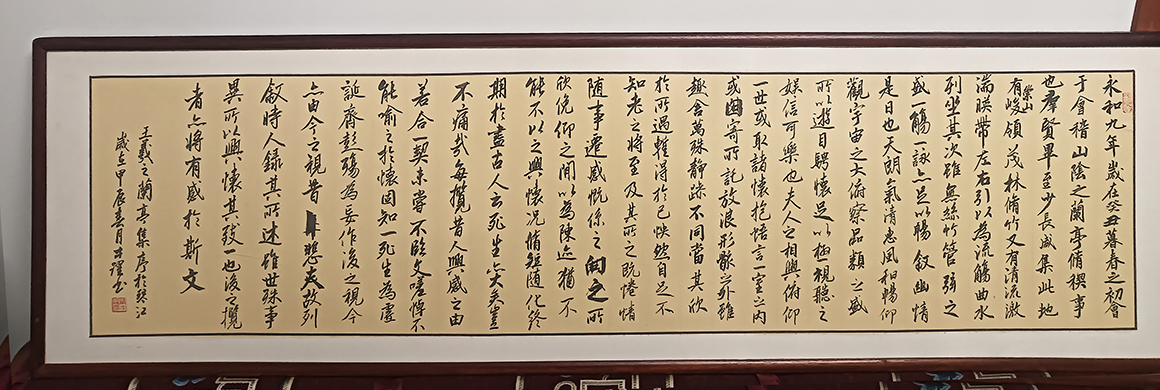 永和九年歲在癸丑暮春之初會
于會稽山陰之蘭亭脩禊事
也羣賢畢至少長咸集此地
有崇山峻領茂林脩竹又有清流激
湍暎帶左右引以為流觴曲水
列坐其次雖無絲竹管弦之
盛一觴一詠亦足以暢敘幽情
是日也天朗氣清惠風和暢仰
觀宇宙之大俯察品類之盛
所以遊目騁懷足以極視聽之
娛信可樂也夫人之相與俯仰
一世或取諸懷抱悟言一室之內
或因寄所託放浪形骸之外雖
趣舍萬殊靜躁不同當其欣
於所遇輒得於己怏然自足不
知老之將至及其所之既惓情
隨事遷感慨係之向之所
欣俛仰之間以為陳迹猶不
能不以之興懷況脩短隨化終
期於盡古人云死生亦大矣豈
不痛哉每攬昔人興感之由
若合一契未嘗不臨文嗟悼不
能喻之於懷固知一死生為虛
誕齊彭殤為妄作後之視今
亦由今之視昔悲夫故列
敘時人錄其所述雖世殊事
異所以興懷其致一也後之攬
者亦將有感於斯文
王羲之蘭亭集序於珠江
歲在甲辰春月